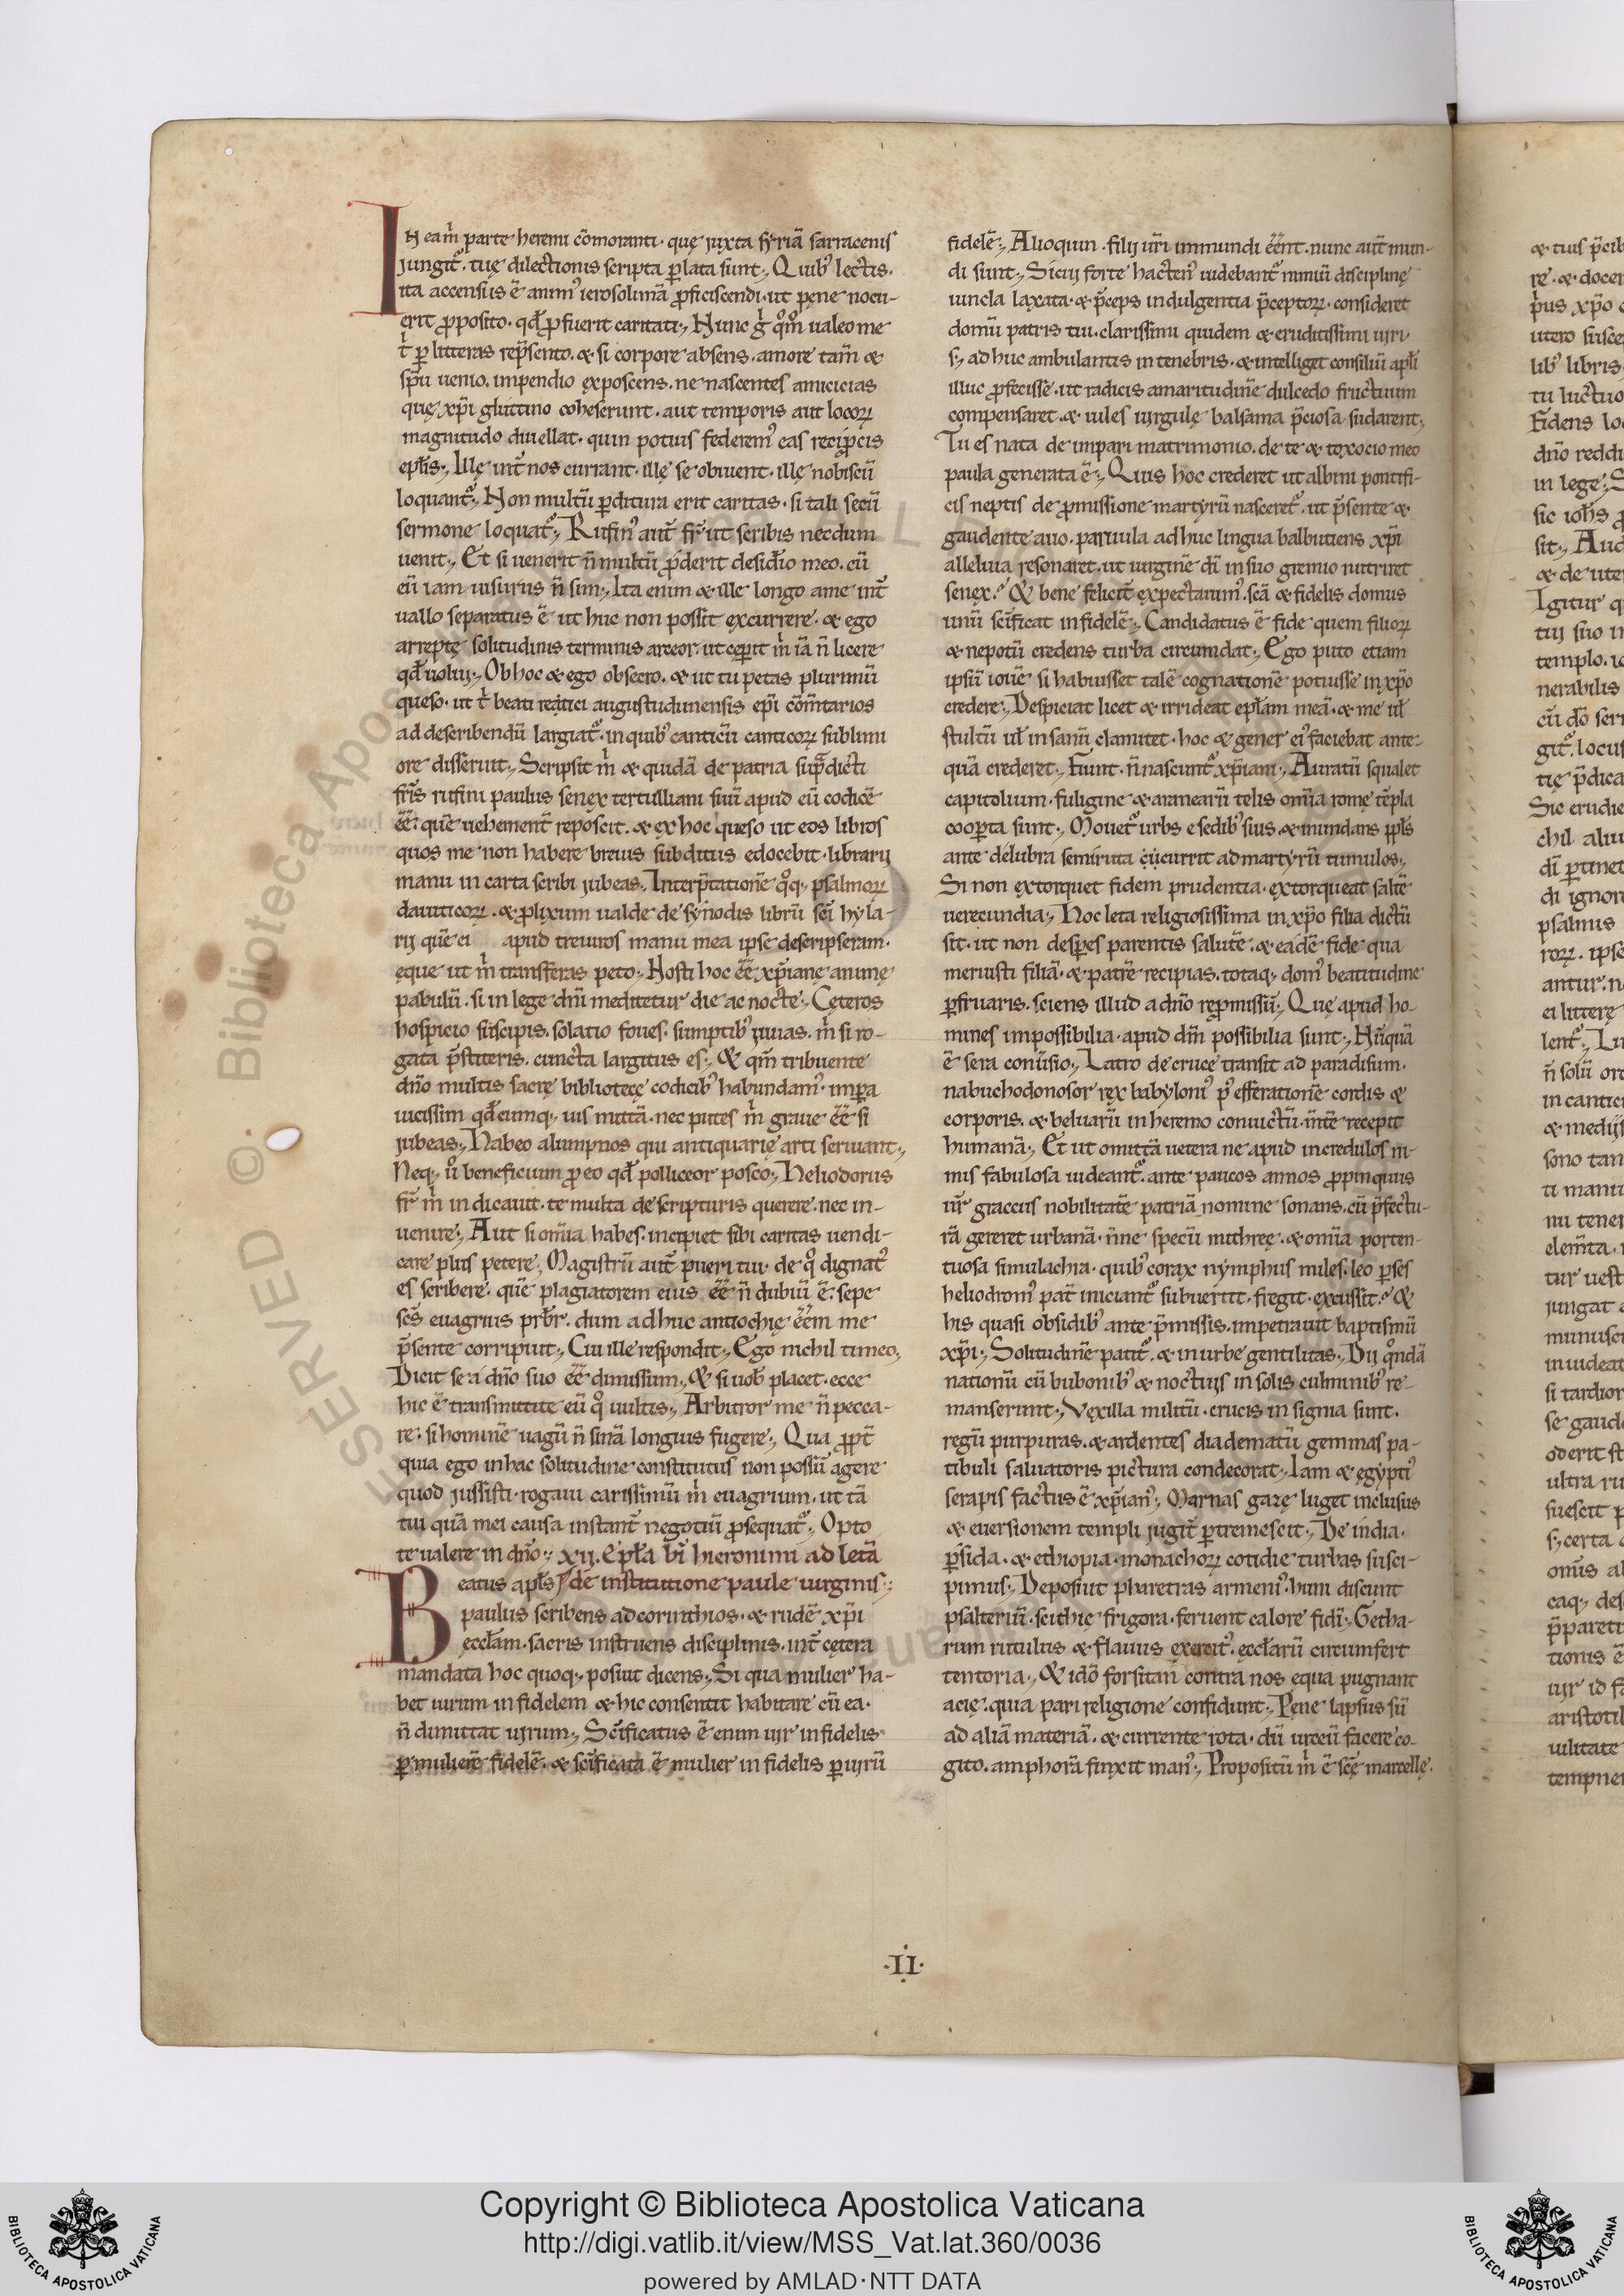 IN eam̃ parte heremi cõmoranti. quę juxta syriã sarracenis
jungit᷑. tuę dilectionis scripta ꝑlata sunt., Quib᷒ lectis.
ita accensus ẽ anim᷒ ierosolimã ꝓficiscendi. ut pęne nocu-
erit ꝓposito. qđ ꝓfuerit caritati., Hunc g̊ qm̊ ualeo me
t̃ ꝑ litteras rep̃sento. & si corpore absens. amore tam̃ &
sp̃u uenio. impendio exposcens. ne nascentes amicicias
quę xp̃i gluttino coheserunt. aut temporis aut locoꝝ
magnitudo diuellat. quin potius federem᷒ eas recip̃cis
ep̃lis., Illę int̃ nos currant. illę se obuient. illę nobiscũ
loquant᷑., Non multũ ꝑditura erit caritas. si tali secũ
sermone loquat᷑., Rufin᷒ aut̃ fr̃ ut scribis necdum
uenit., Et si uenerit ñ multũ ꝓderit desiđio meo. cũ
eũ iam uisurus ñ sim., Ita enim & ille longo a me int̃
uallo separatus ẽ ut huc non possit excurrere. & ego
arreptę solitudinis terminis arceor. ut ceꝑit m̃ iã ñ licere
qđ uolui., Ob hoc & ego obsecro. & ut tu petas plurimũ
queso. ut t̃ beati reatici augustudunensis ep̃i cõm̃tarios
ad describendũ largiat᷑. in quib᷒ canticũ canticoꝝ sublimi
ore disseruit., Scripsit m̃ & quidã de patria sup̃dicti
fr̃is rufini paulus senex tertulliani suũ apud eũ codicẽ
eẽ. quẽ uehement̃ reposcit. & ex hoc queso ut eos libros
quos me non habere breuis subditus edocebit. librarij
manu in carta scribi jubeas., Interp̃tationẽ q̊q; psalmoꝝ
dauiticoꝝ. & ꝓlixum ualde de synodis librũ sc̃i hyla-
rij quẽ ei apud treuiros manu mea ipse descripseram.
ęque ut m̃ transferas peto., Nosti hoc eẽ xp̃iane animę
pabulũ. si in lege dñi meditetur die ac nocte., Cęteros
hospicio suscipis. solatio foues. sumptib᷒ juuas. m̃ si ro-
gata p̃stiteris. cuncta largitus es., & qm̃ tribuente
dño multis sacrę bibliotecę codicib᷒ habundam᷒. imꝑa
uicissim qđcumq; uis mittã. nec putes m̃ graue eẽ si
jubeas., Habeo alumpnos qui antiquarię arti seruiant.,
Neq; u̇ beneficium ꝓ eo qđ polliceor posco., Heliodorus
fr̃ m̃ indicauit. te multa de scripturis querere. nec in-
uenire., Aut si om̃ia habes. incipiet sibi caritas uendi-
care plus petere., Magistrũ aut̃ pueri tui. de q̊ dignat᷒
es scribere. quẽ plagiatorem eius eẽ ñ dubiũ ẽ. sepe
sc̃s euagrius prb̃r. dum adhuc antiochię eẽm me
p̃sente corripuit., Cui ille respondit., Ego nichil timeo.,
Dicit se a dño suo eẽ dimissum., & si uob̃ placet. ecce
hic ẽ transmittite eũ q̊ uultis., Arbitror me ñ pecca-
re. si hominẽ uagũ ñ sinã longius fugere., Qua ꝓpt̃
quia ego in hac solitudine constitutus non possũ agere
quod jussisti. rogaui carissimũ m̃ euagrium. ut tã
tui quã mei causa instant̃ negotiũ ꝓsequat᷑., Opto
te ualere in dño., xij. Ep̃la bĩ hieronimi ad letã
Beatus ap̃ls de institutione paule uirginis.,
paulus scribens ad corinthios. & rudẽ xp̃i
ęccl̃am. sacris instruens disciplinis. int̃ cętera
mandata hoc quoq; posuit dicens., Si qua mulier ha-
bet uirum infidelem & hic consentit habitare cũ ea.
ñ dimittat uirum., Sc̃ificatus ẽ enim uir infidelis
ꝑ mulierẽ fidelẽ. & sc̃ificata ẽ mulier infidelis ꝑ uirũ
fidelẽ., Alioquin. filij ur̃i immundi eẽnt. nunc aut̃ mun-
di sunt., Sicui forte hacten᷒ uidebant᷑ nimiũ disciplinę
uincla laxata. & p̃ceps indulgentia p̃ceptoꝝ. consideret
domũ patris tui. clarissimi quidem & eruditissimi uiri.
s; adhuc ambulantis in tenebris. & intelliget consiliũ ap̃li
illuc ꝓfecisse. ut radicis amaritudinẽ dulcedo fructuum
compensaret. & uiles uirgulę balsama p̃ciosa sudarent.,
Tu es nata de impari matrimonio. de te & toxocio meo
paula generata ẽ., Quis hoc crederet ut albini pontifi-
cis neptis de ꝓmissione martyrũ nasceret᷑. ut p̃sente &
gaudente auo. paruula adhuc lingua balbutiens xp̃i
alleluia resonaret. ut uirginẽ dĩ in suo gremio nutriret
senex? & bene felicit̃ expectauim᷒. sc̃a & fidelis domus
unũ sc̃ificat infidelẽ., Candidatus ẽ fide quem filioꝝ
& nepotũ credens turba circumdat., Ego puto etiam
ipsũ iouẽ si habuisset talẽ cognationẽ potuisse in xp̃o
credere., Despiciat licet & irrideat ep̃lam meã. & me ul̃
stultũ ul̃ insanũ clamitet. hoc & gener ei᷒ faciebat ante-
quã crederet., Fiunt. ñ nascunt᷑ xp̃iani., Auratũ squalet
capitolium. fuligine & aranearũ telis om̃ia romę tẽpla
cooꝑta sunt., Mouet᷑ urbs e sedib᷒ suis. & inundans pp̃ls
ante delubra semiruta cucurrit ad martyrũ tumulos.,
Si non extorquet fidem prudentia. extorqueat saltẽ
uerecundia., Hoc leta religiosissima in xp̃o filia dictũ
sit. ut non desꝑes parentis salutẽ. & eadẽ fide qua
meruisti filiã. & patrẽ recipias. totaq; dom᷒ beatitudine
ꝑfruaris. sciens illud a dño reꝓmissũ., Quę apud ho-
mines impossibilia. apud dm̃ possibilia sunt., Nũquã
ẽ sera conũsio., Latro de cruce transit ad paradisum.
nabuchodonosor rex babyloni᷒ p᷒ efferationẽ cordis &
corporis. & beluarũ in heremo conuictũ. m̃tẽ recepit
humanã., Et ut omittã uetera ne apud incredulos ni-
mis fabulosa uideant᷑. ante paucos annos ꝓpinquus
ur̃ graccus nobilitatẽ patriã nomine sonans. cũ p̃fectu-
rã gereret urbanã. ñne specũ mithreę. & om̃ia porten-
tuosa simulachra. quib᷒ corax nymphus miles. leo ꝑses
heliodrom᷒ pat̃ iniciant᷑ subuertit. fregit. excussit? &
his quasi obsidib᷒ ante p̃missis. impetrauit baptismũ
xp̃i., Solitudinẽ patit᷑. & in urbe gentilitas., Dij q̊ndã
nationũ cũ bubonib᷒ & noctuis in solis culminib᷒ re-
manserunt., Vexilla militũ. crucis insignia sunt.
regũ purpuras. & ardentes diadematũ gemmas pa-
tibuli saluatoris pictura condecorat., Iam & egypti᷒
serapis factus ẽ xp̃ian᷒., Marnas gazę luget inclusus
& euersionem templi jugit̃ ꝑtremescit., De india.
ꝑsida. & ethiopia. monachoꝝ cotidie turbas susci-
pimus., Deposiut pharetras armeni᷒. huni discunt
psalteriũ. scithię frigora. feruent calore fidĩ., Getha-
rum rutulus & flauus exercit᷒. ęccl̃arũ circumfert
tentoria., & idõ forsitan contra nos ęqua pugnant
acię. quia pari religione confidunt., Pene lapsus sũ
ad aliã materiã. & currente rota. dũ urceũ facere co-
gito. amphorã finxit man᷒., Propositũ m̃ ẽ sc̃ę marcellę.
.II.
Copyright © Biblioteca Apostolica Vaticana
http://digi.vatlib.it/view/MSS_Vat.lat.360/0036
powered by AMLAD·NTT DATA
BIBLIOTECA APOSTOLICA VATICANA
BIBLIOTECA APOSTOLICA VATICANA